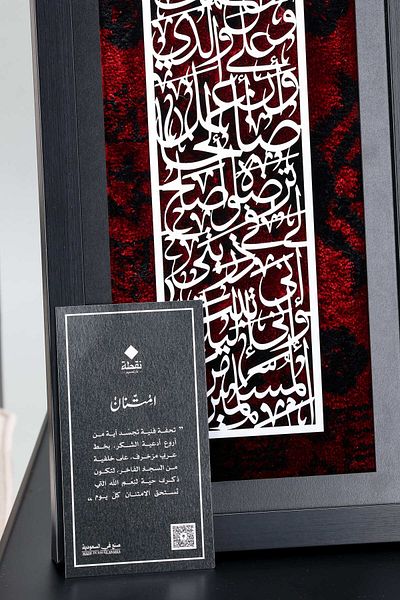 وعلى والدي
وأن أعمل
صالحا
ترضاه وأصلح
لي في ذريتي
إني تبت
إليك وإني
من المسلمين
نقطة
امتنان
" تحفة فنية تجسد آية من
أروع أدعية الشكر، بخط
عربي مزخرف، على خلفية
من السجاد الفاخر، لتكون
ذكرى حيّة لنعم الله التي
تستحق الامتنان كل يوم "
صنع في السعودية
MADE IN SAUDI ARABIA